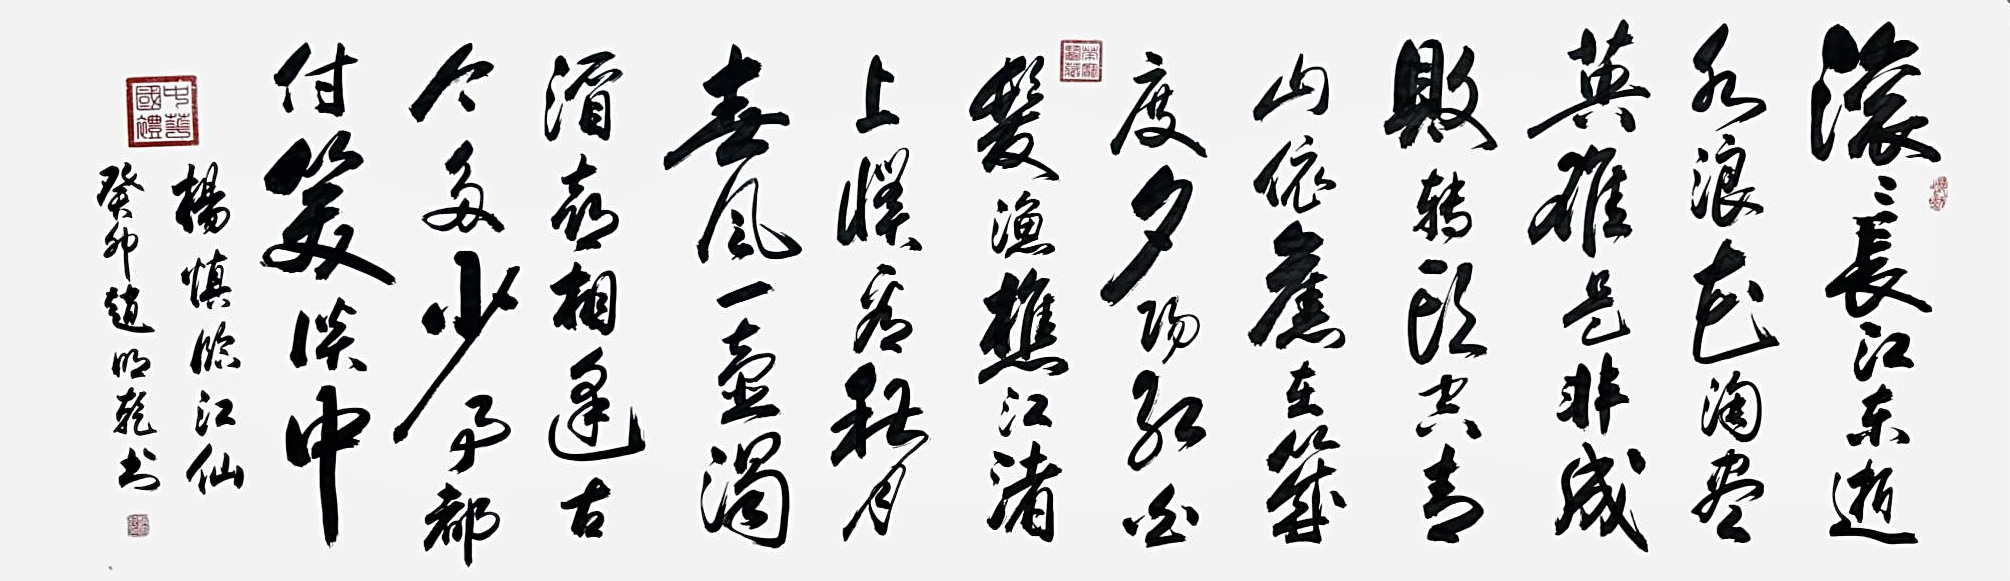 滚〻長江东逝
水浪花淘尽
英雄是非成
敗转头空青
山依舊在幾
度夕阳红白
髮渔樵江渚
上惯看秋月
春风一壶濁
酒喜相逢古
今多少事都
付笑谈中
中華國禮
楊慎临江仙
癸卯趙明乾书